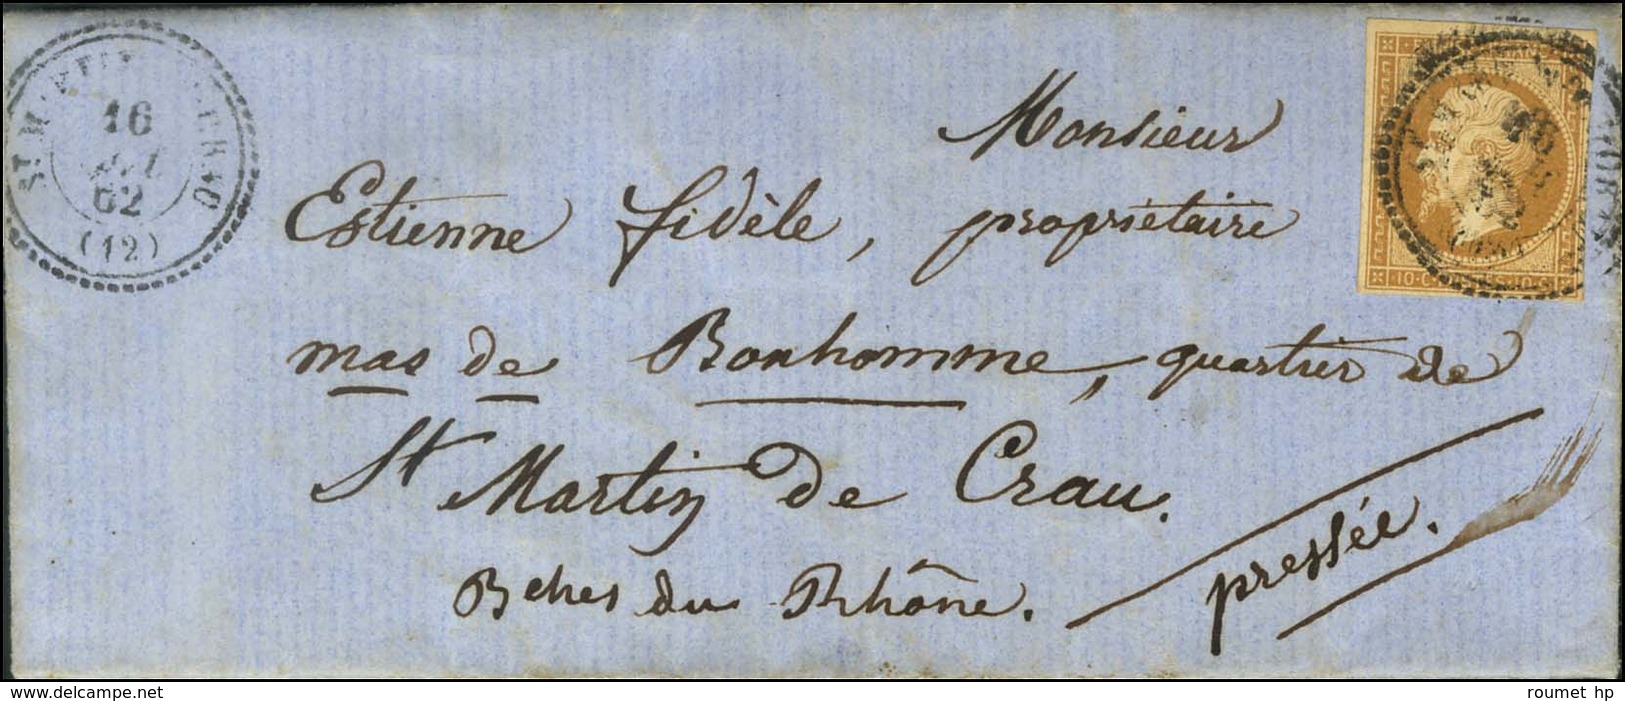 16
62
(12)
Monsieur
Estienne fidèle, propriétaire
mas de Bonhomme, quartier de
St Martin de Crau.
Bches du Rhône.
pressée.
10·C
www.delcampe.net
roumet hp